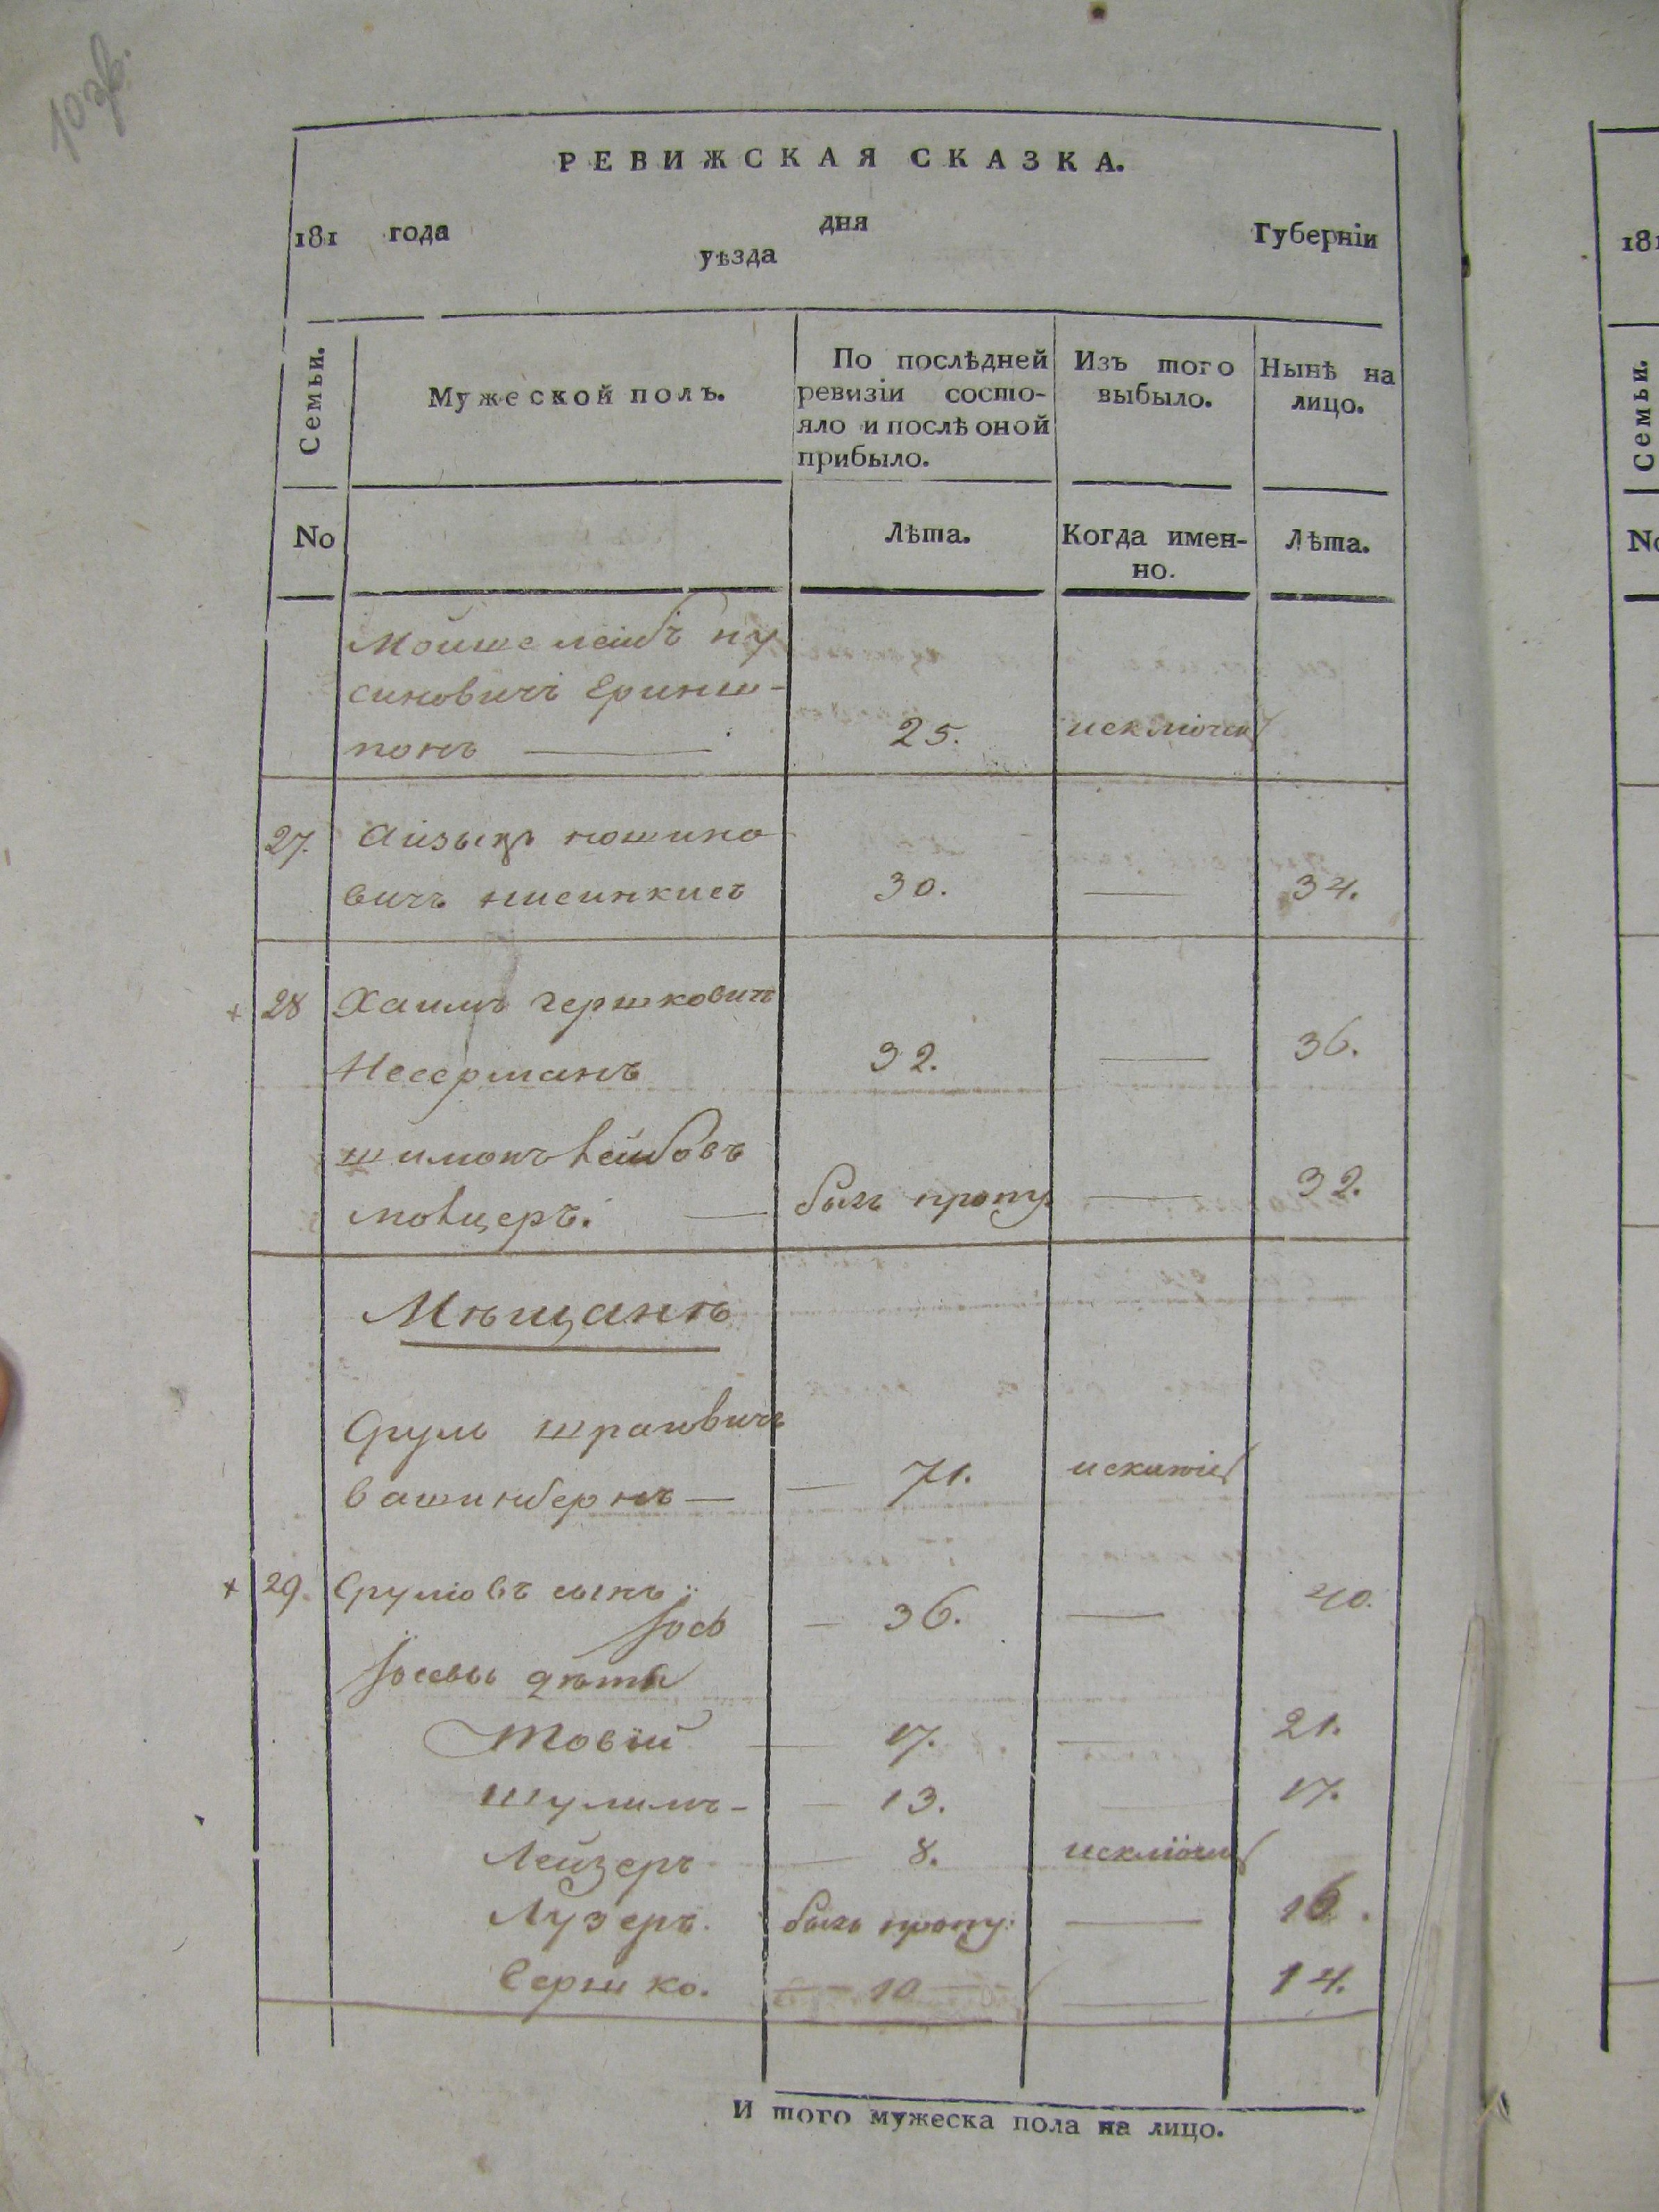 10 об.
РЕВИЖСКАЯ СКАЗКА.
181 года дня Губерніи
уѣзда
Семьи. Мужеской полъ. По послѣдней ревизіи состояло и послѣ оной прибыло. Изъ того выбыло. Нынѣ на лицо.
No Лѣта. Когда имен-но. Лѣта.
Мойше лейбъ ну
синовичъ Еринш-
понъ 25. исключен
27. Айзыкъ
вичъ 30. — 34.
28 Хаимъ гершковичъ
Несерманъ 32. — 36.
шимонъ лейбовъ
молцеръ. — былъ пропу — 32.
Мѣщанѣ
Срулъ
вашинбернъ — 71.
29. Срулiовъ сынъ
Іосъ — 36. — 40.
Іосевы дѣти
Товій — 17. — 21.
Шулимъ — 13. — 17.
Лейзеръ — 8. исключен
Лузеръ. былъ пропу: — 16.
Гершко. — 10 — 14.
И того мужеска пола на лицо.
181
Семьи.
No